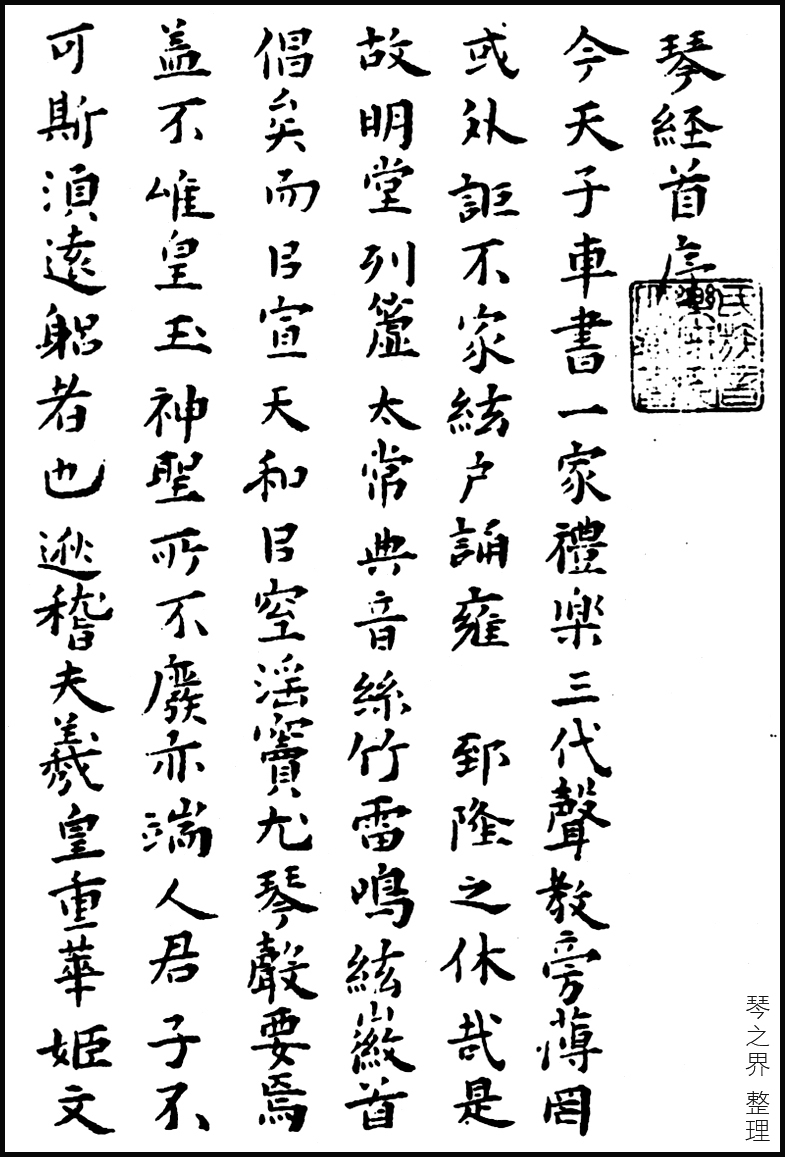 琴経首序
今天子車書一家禮楽三代聲教旁薄罔
或外詎不家絃户誦雍 郅隆之休哉是
故明堂列簴太常典音絲竹雷鳴絃徽首
倡矣而曰宣天和曰窒淫竇尤琴聲要焉
盖不唯皇王神聖所不廢亦端人君子不
可斯須遠躬者也逖稽夫羲皇重華姬文
琴之界 整理